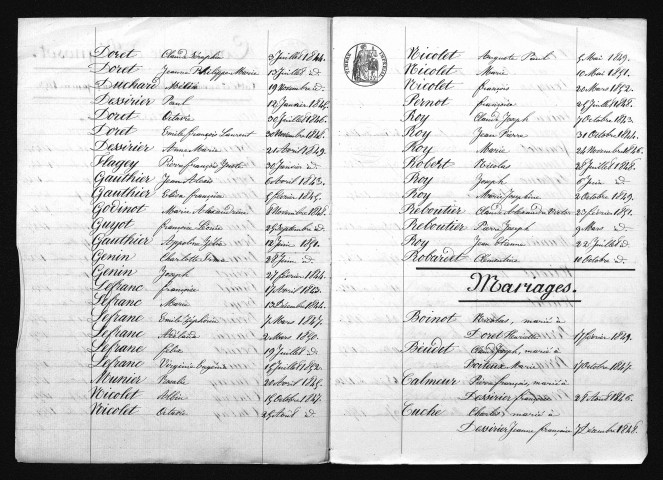 Doret Claude Josephe 3 Juillet 1844.
Doret Jeanne Philippe Marie 13 Juillet id
Duchard 19 Novembre id
Dessirier Paul 12 Janvier 1846.
Doret Octavie 30 Juillet 1846.
Doret Emile françois Laurent 30 Novembre 1848.
Dessirier Anne Marie 21 Avril 1849.
Flagey Pierre françois 30 Janvier id
Gauthier Jean Alexis 6 Avril 1843.
Gauthier Elisa françoise 5 février 1845.
Godinot Marie Alexandrine 8 Novembre 1848.
Guyot françoise 25 Septembre id
Gauthier Appoline 12 Juin 1850.
Genin Charlotte 28 Juin id
Genin Joseph 27 février 1844.
Lefranc françoise 17 Avril 1843.
Lefranc Marie 13 Décembre 1844.
Lefranc Emile Zéphirin 7 Mars 1847.
Lefranc 2 Mars 1850.
Lefranc félix 19 Juillet id
Lefranc Virginie Eugénie 15 Juillet 1852.
Munier Rosalie 20 Avril 1845.
Nicolet Albin 15 Octobre 1847.
Nicolet Octavie 25 Avril id
TIMBRE IMPERIAL
Nicolet Auguste Paul 5 Mai 1849.
Nicolet Marie 10 Mai 1851.
Nicolet françois 20 Mars 1852.
Pernot françoise 25 Juillet 1848.
Roy Claude Joseph 7 Octobre 1843.
Roy Jean Pierre 31 Octobre 1844.
Roy Marie 24 Novembre 1846.
Robert Nicolas 28 Juillet 1848.
Roy Joseph 6 Juin id
Roy Marie Joséphine 2 Octobre 1849.
Reboutier Claude Alexandre Nicolas 23 février 1851.
Reboutier Pierre Joseph 9 Mars id
Roy Jean Etienne 22 Juillet id
Robardet Clémentine 11 Octobre id
Mariages.
Boinot Nicolas, marié à
Doret Henriette 17 février 1849.
Bieudit Claude Joseph, marié à
Boiteux Marie 7 Octobre 1847.
Calmeur Pierre françois, marié à
Dessirier françoise 28 Août 1846.
Cuche Charles, marié à
Dessirier Jeanne françoise 7 Décembre 1848.